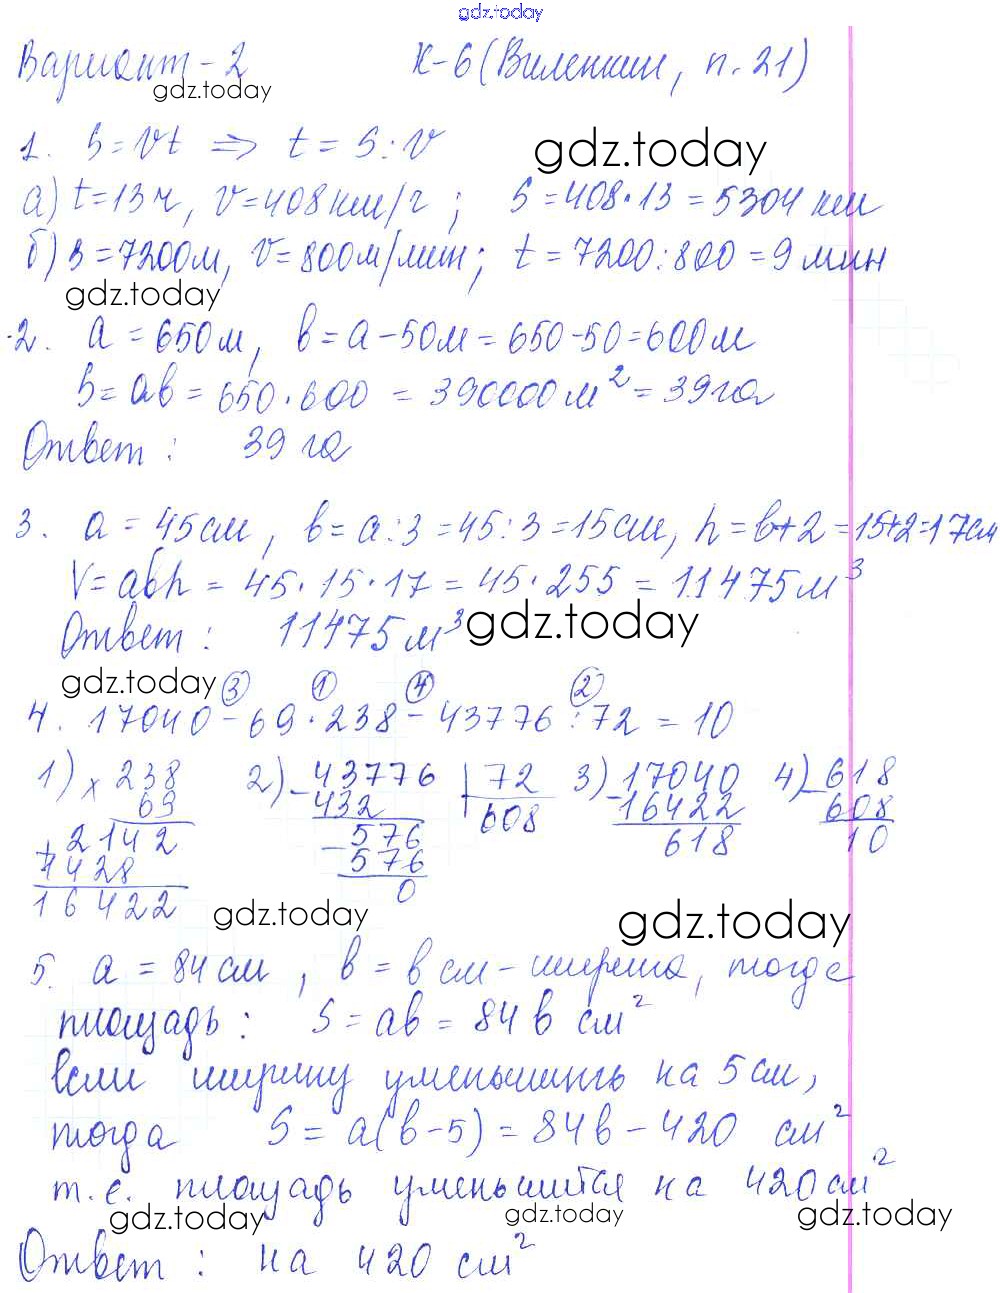 gdz.today
Вариант-2 К-6 (Виленкин, п.21)
gdz.today
1. S=Vt ⇒ t = S:V
gdz.today
а) t=13ч, V=408км/ч; S=408·13=5304 км
б) S=7200м, V=800м/мин; t=7200:800=9мин
gdz.today
2. a = 650м, b=a-50м=650-50=600м
S=ab=650·600=390000м²=39га
Ответ: 39 га
3. a=45см, b=a:3=45:3=15см, h=b+2=15+2=17см
V=abh=45·15·17=45·255=11475м³
Ответ: 11475м³
gdz.today
gdz.today
③ ① ④ ②
4. 17040-69·238-43776:72=10
1) × 238 2) - 43776 | 72 3) - 17040 4) - 618
69 432 608 16422 608
+ 2142 - 576 618 10
1428 576
16422 0
gdz.today gdz.today
5. a=84см, b=b см-ширина, тогда
площадь: S=ab=84b см²
если ширину уменьшить на 5см,
тогда S=a(b-5)=84b-420 см²
т.е. площадь уменьшится на 420см²
gdz.today gdz.today gdz.today
Ответ: на 420 см²